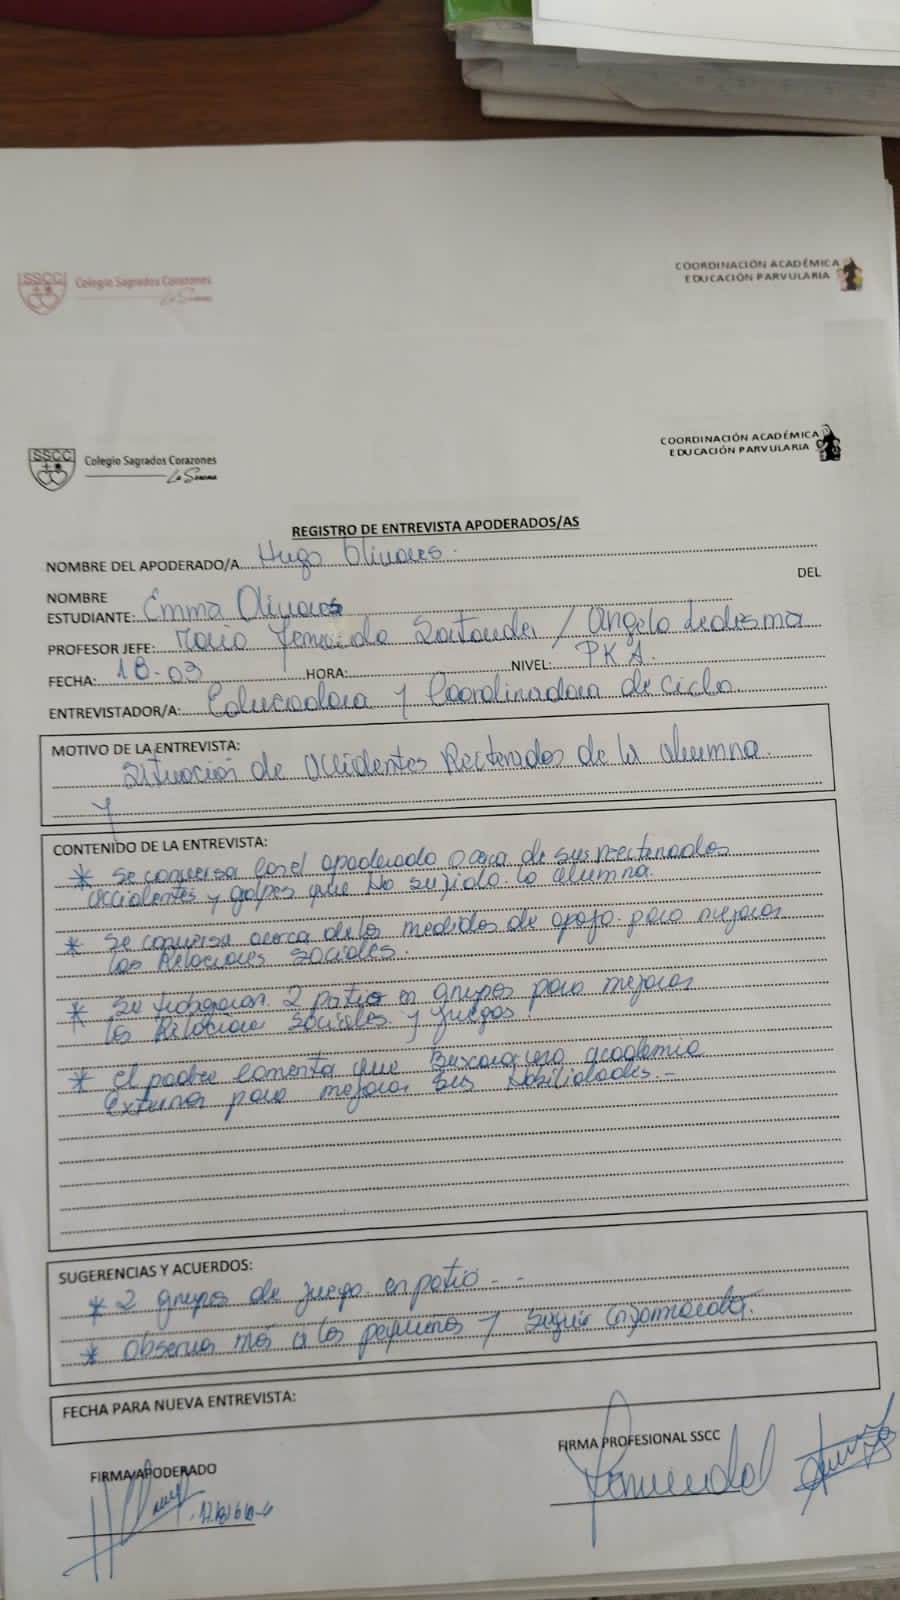 SSCC Colegio Sagrados Corazones
La Serena
COORDINACIÓN ACADÉMICA
EDUCACIÓN PARVULARIA
SSCC Colegio Sagrados Corazones
La Serena
COORDINACIÓN ACADÉMICA
EDUCACIÓN PARVULARIA
REGISTRO DE ENTREVISTA APODERADOS/AS
NOMBRE DEL APODERADO/A Hugo Olivares.
NOMBRE DEL
ESTUDIANTE: Emma Olivares
PROFESOR JEFE: María Fernanda Santander / Angela Ledesma
FECHA: 18-03 HORA: NIVEL: PK A.
ENTREVISTADOR/A: Educadora y Coordinadora de ciclo.
MOTIVO DE LA ENTREVISTA:
Situación de accidentes Reiterados de la alumna.
y
CONTENIDO DE LA ENTREVISTA:
* Se conversa con el apoderado acerca de sus reiterados
accidentes y golpes que ha sufrido la alumna.
* Se conversa acerca de las medidas de apoyo para mejorar
las Relaciones sociales.
* Se trabajaran 2 patios en grupos para mejorar
las Relacione sociales y juegos.
* El padre comenta que Buscara una academia
externa para mejorar sus habilidades.-
SUGERENCIAS Y ACUERDOS:
* 2 grupos de juego en patio - -
* observar más a los pequeños y seguir
FECHA PARA NUEVA ENTREVISTA:
FIRMA APODERADO
FIRMA PROFESIONAL SSCC